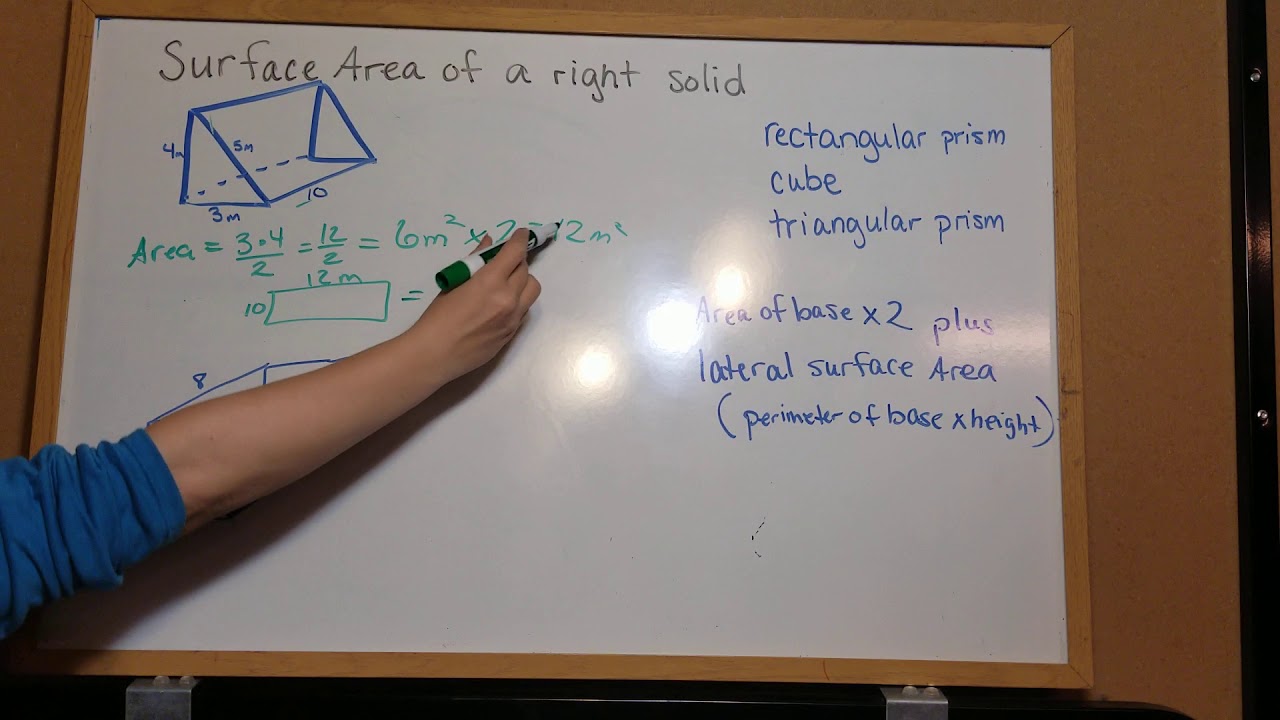 Surface Area of a right solid
4m
5m
10
3m
Area = 3•4/2 = 12/2 = 6m² x 2 = 12m²
12m
10
=
8
rectangular prism
cube
triangular prism
Area of base x 2 plus
lateral surface Area
(perimeter of base x height)